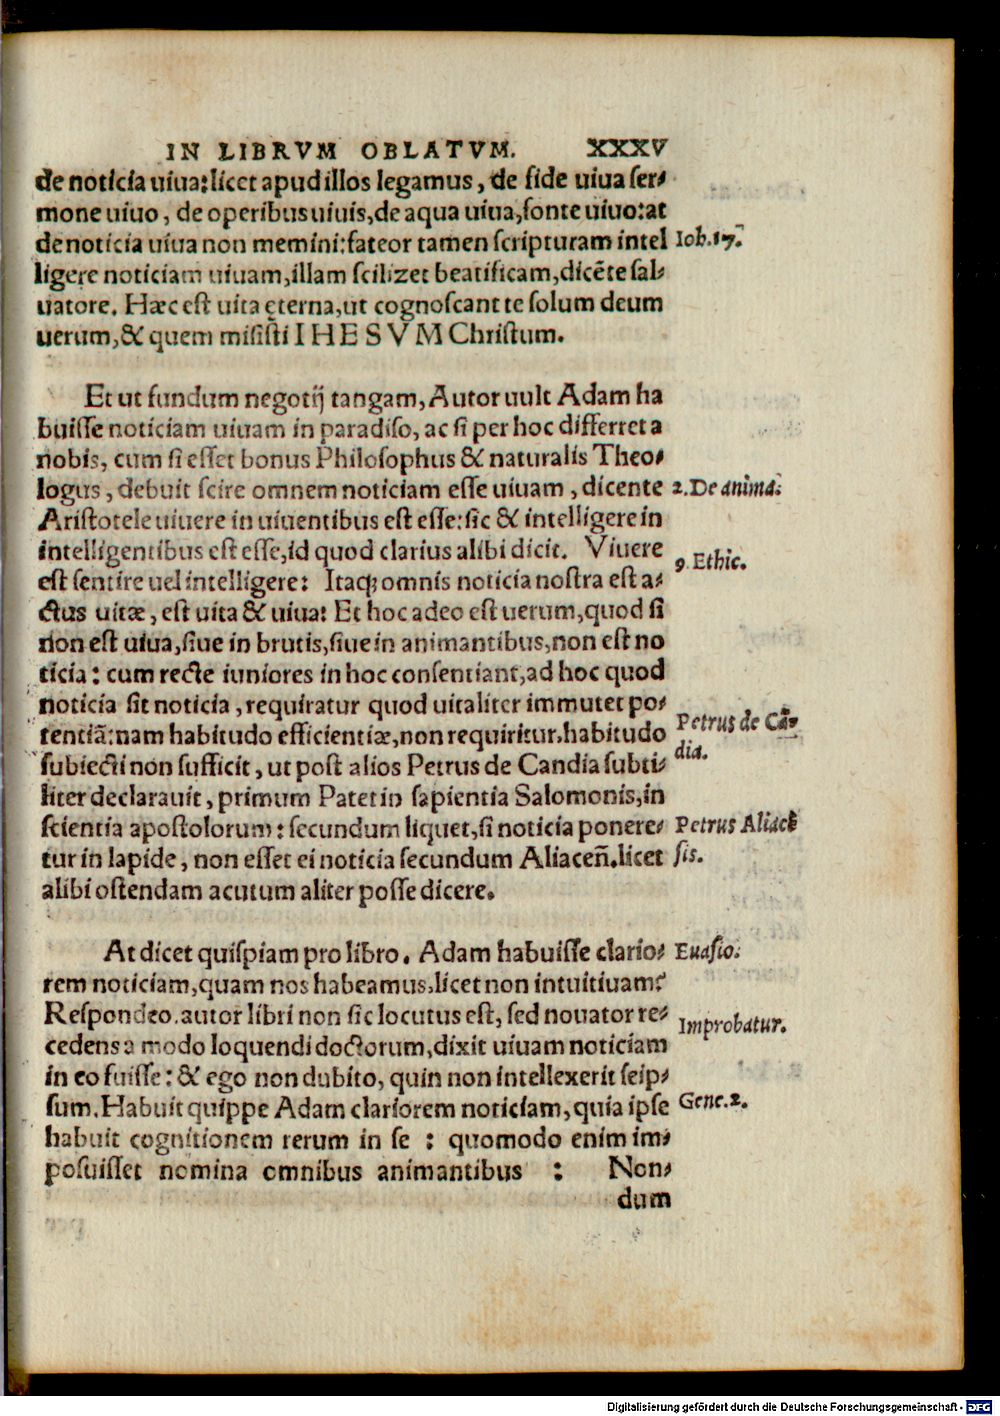 IN LIBRVM OBLATVM. XXXV
de noticia uiua: licet apud illos legamus, de fide uiua ser-
mone uiuo, de operibus uiuis, de aqua uiua, fonte uiuo: at
de noticia uiua non memini: fateor tamen scripturam intel
Ioh. 17.
ligere noticiam uiuam, illam scilizet beatificam, dicēte sal-
uatore. Hæc est uita ęterna, ut cognoscant te solum deum
uerum, & quem misisti IHESVM Christum.
Et ut fundum negotij tangam, Autor uult Adam ha
buisse noticiam uiuam in paradiso, ac si per hoc differret a
nobis, cum si esset bonus Philosophus & naturalis Theo-
logus, debuit scire omnem noticiam esse uiuam, dicente
2. De anima.
Aristotele uiuere in uiuentibus est esse: sic & intelligere in
intelligentibus est esse, id quod clarius alibi dicit. Viuere
9. Ethic.
est sentire uel intelligere: Itaq; omnis noticia nostra est a-
ctus uitæ, est uita & uiua: Et hoc adeo est uerum, quod si
non est uiua, siue in brutis, siue in animantibus, non est no
ticia: cum recte iuniores in hoc consentiant, ad hoc quod
noticia sit noticia, requiratur quod uitaliter immutet po-
tentiā: nam habitudo efficientiæ, non requiritur, habitudo
Petrus de Cā-
dia.
subiecti non sufficit, ut post alios Petrus de Candia subti-
liter declarauit, primum Patet in sapientia Salomonis, in
scientia apostolorum: secundum liquet, si noticia ponere-
Petrus Aliacē
sis.
tur in lapide, non esset ei noticia secundum Aliaceñ. licet
alibi ostendam acutum aliter posse dicere.
At dicet quispiam pro libro. Adam habuisse clario-
Euasio.
rem noticiam, quam nos habeamus, licet non intuitiuam?
Respondeo. autor libri non sic locutus est, sed nouator re-
Improbatur.
cedens a modo loquendi doctorum, dixit uiuam noticiam
in eo fuisse: & ego non dubito, quin non intellexerit seip-
sum. Habuit quippe Adam clariorem noticiam, quia ipse
Gene. 2.
habuit cognitionem rerum in se : quomodo enim im-
posuisset nomina omnibus animantibus : Non-
dum
Digitalisierung gefördert durch die Deutsche Forschungsgemeinschaft - DFG